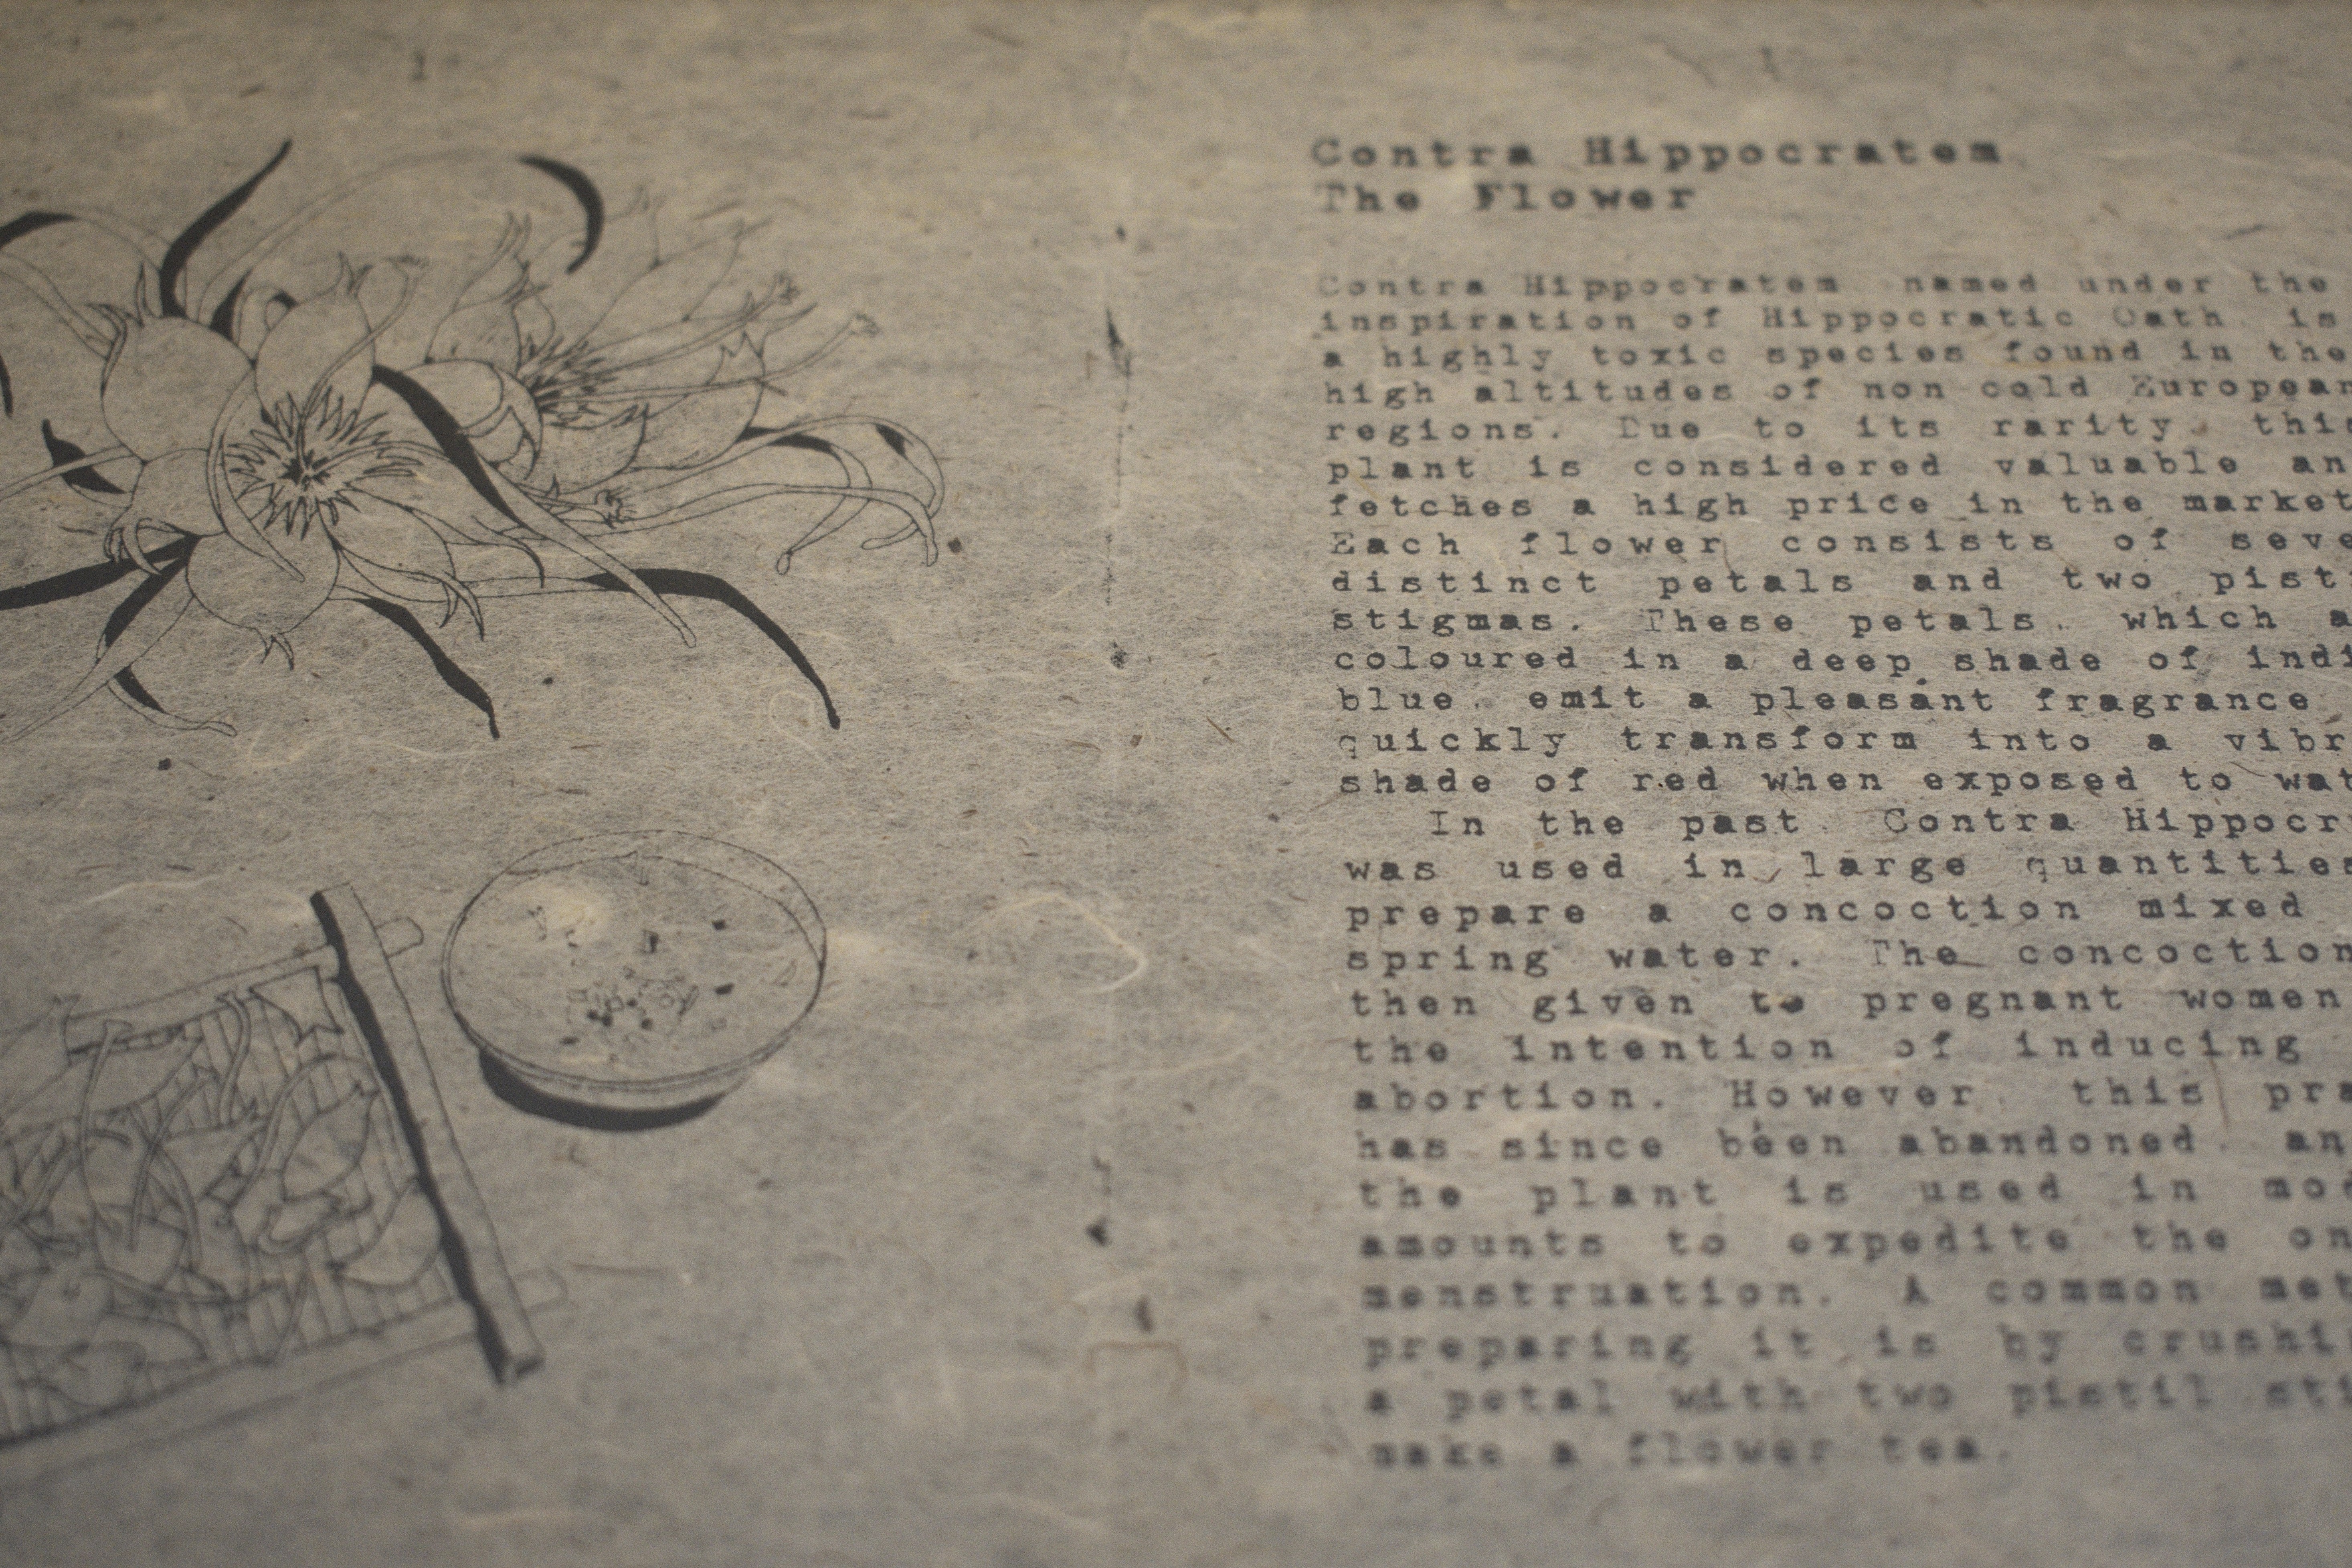 Contra Hippocratem
The Flower
Contra Hippocratem named under the
inspiration of Hippocratic Oath is
a highly toxic species found in the
high altitudes of non cold European
regions. Due to its rarity, this
plant is considered valuable an
fetches a high price in the market
Each flower consists of seve
distinct petals and two pist
stigmas. These petals, which a
coloured in a deep shade of indi
blue, emit a pleasant fragrance
quickly transform into a vibr
shade of red when exposed to wat
In the past Contra Hippocr
was used in large quantities
prepare a concoction mixed
spring water. The concoction
then given to pregnant women
the intention of inducing
abortion. However this pra
has since been abandoned an
the plant is used in mod
amounts to expedite the on
menstruation. A common met
preparing it is by crushi
a petal with two pistil sti
make a flower tea.